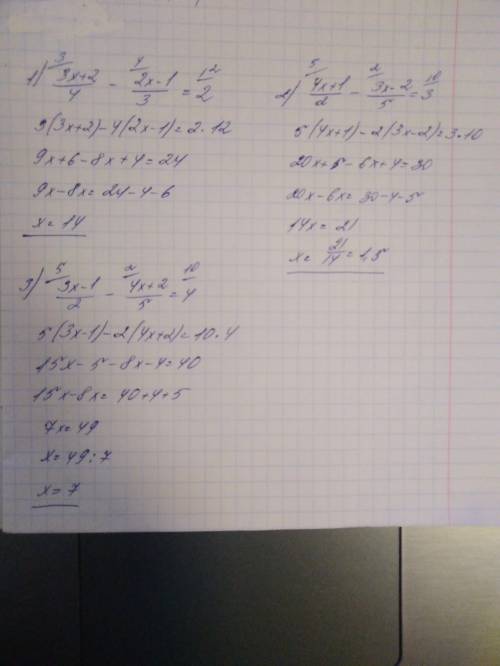 1) ³/(3x+2)/4 - ⁴/(2x-1)/3 = ¹²/2
3(3x+2)-4(2x-1)=2·12
9x+6-8x+4=24
9x-8x=24-4-6
x=14
2) ⁵/(4x+1)/2 - ²/(3x-2)/5 = ¹⁰/3
5(4x+1)-2(3x-2)=3·10
20x+5-6x+4=30
20x-6x=30-4-5
14x=21
x=21/14=1,5
3) ⁵/(3x-1)/2 - ²/(4x+2)/5 = ¹⁰/4
5(3x-1)-2(4x+2)=10·4
15x-5-8x-4=40
15x-8x=40+4+5
7x=49
x=49:7
x=7